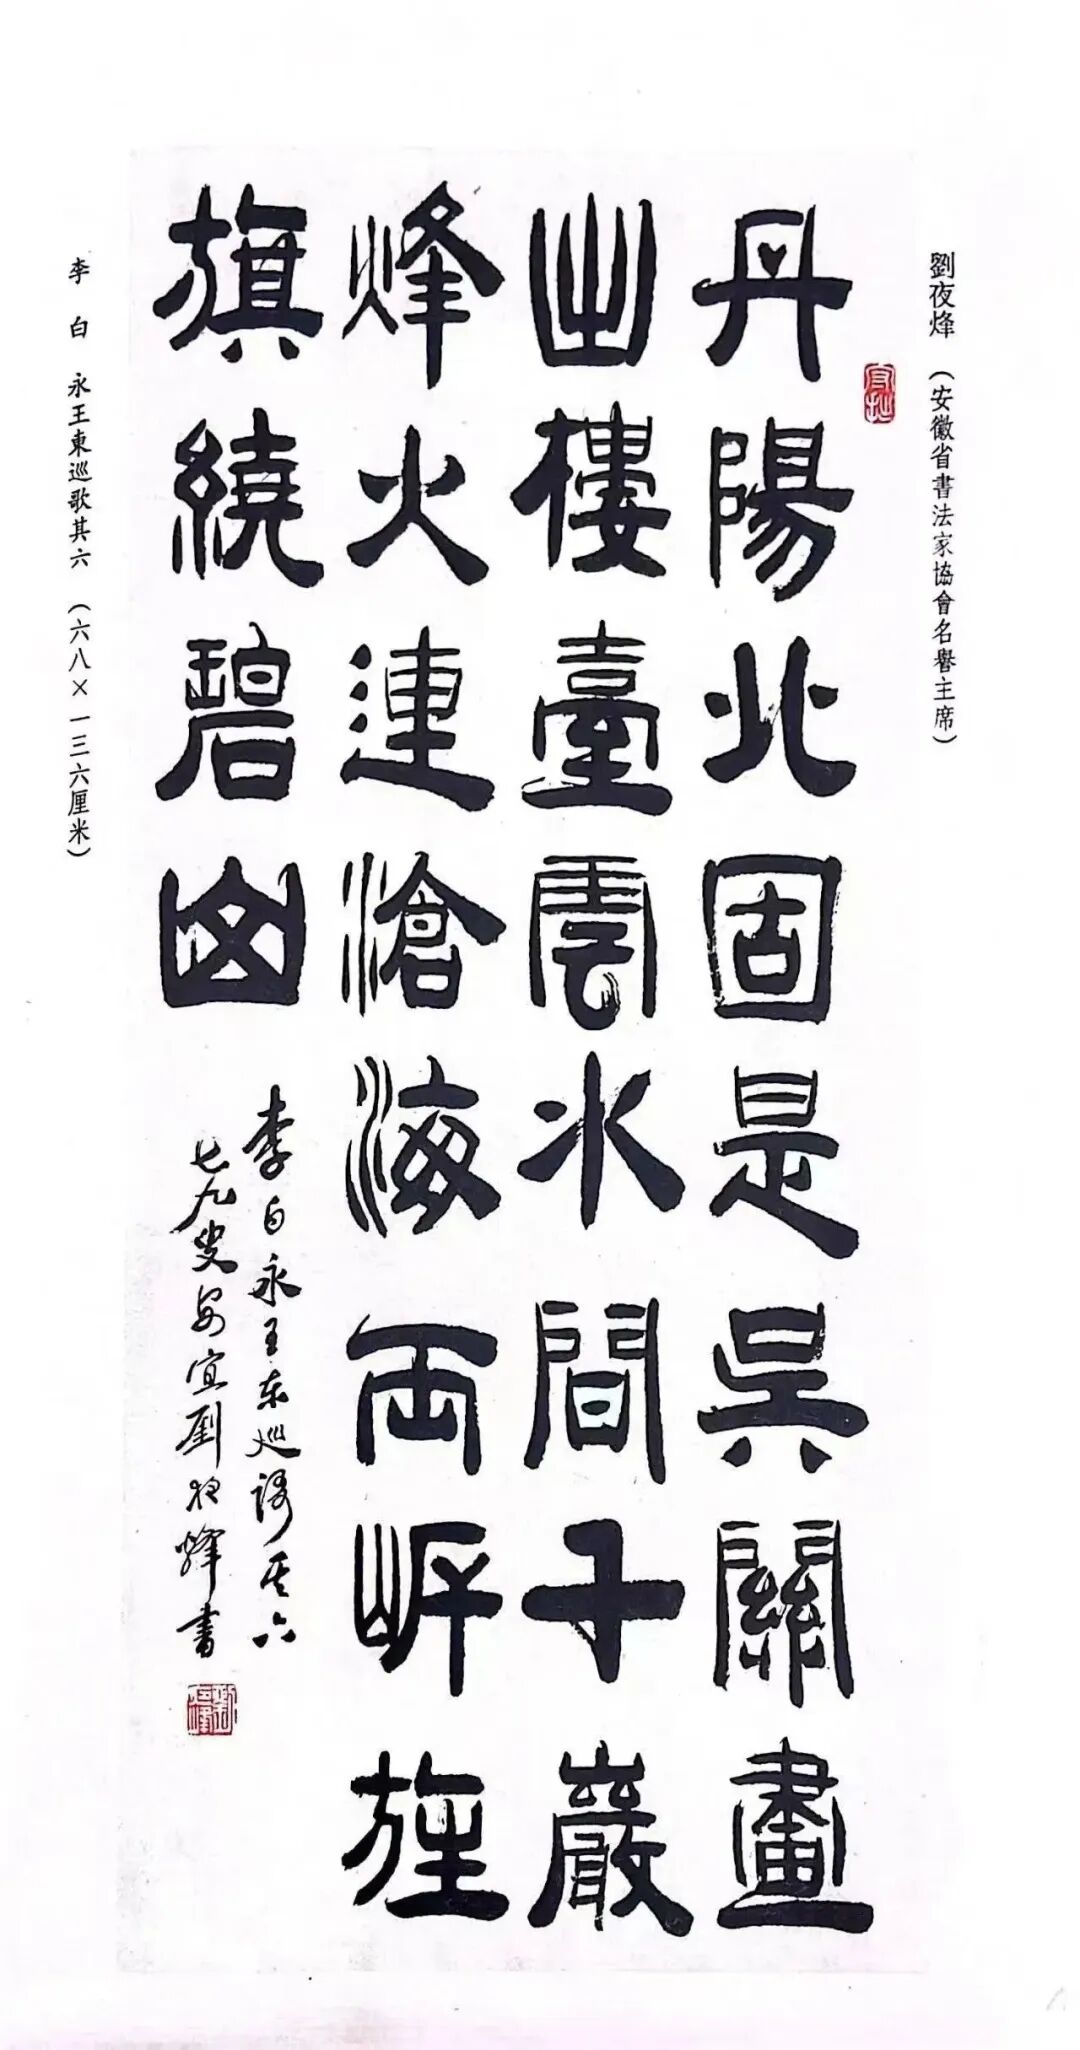 劉夜烽（安徽省書法家協會名譽主席）
守拙
丹陽北固是吳關畫
出樓臺雲水間千巖
烽火連滄海兩岍旌
旗繞碧山
李白永王东巡謌其六
七九叟安宜劉夜烽書
李白 永王東巡歌其六（六八×一三六厘米）